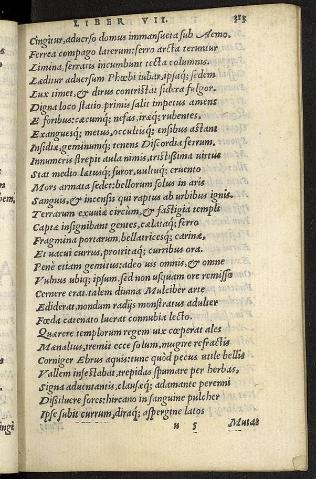 LIBER VII. 313
Cingitur, aduerso domus immansueta sub Aemo.
Ferrea compago laterum: ferro arcta teruntur
Limina, ferratis incumbunt tecta columnis.
Læditur aduersum Phœbi iubar, ipsaq; sedem
Lux timet, & dirus contristat sidera fulgor.
Digna loco statio. primis salit impetus amens
E foribus: cæcumq; nefas, iræq; rubentes,
Exanguesq; metus, occultisq; ensibus astant
Insidiæ, geminumq; tenens Discordia ferrum.
Innumeris strepit aula nimis, tristissima uirtus
Stat medio lætusq; furor, uultuq; cruento
Mors armata sedet: bellorum solus in aris
Sanguis, & incensis qui raptus ab urbibus ignis.
Terrarum exuuiæ circum, & fastigia templi
Captæ insignibant gentes, cælataq; ferro
Fragmina portarum, bellatricesq; carinæ,
Et uacui currus, protritaq; curribus ora.
Penè etiam gemitus: adeo uis omnis, & omne
Vulnus ubiq; ipsum, sed non usquam ore remisso
Cernere erat. talem diuina Mulciber arte
Ediderat. nondum radijs monstratus adulter
Fœda catenato luerat connubia lecto.
Quærere templorum regem uix cœperat ales
Mænalius, tremit ecce solum, mugire refractis
Corniger Ebrus aquis: tunc quòd pecus utile bellis
Vallem infestabat, trepidas spumare per herbas,
Signa aduentantis, clausæq; adamante perenni
Dissiluere fores: hircano in sanguine pulcher
Ipse subit currum, diraq; aspergine latos
n 5 Mutat